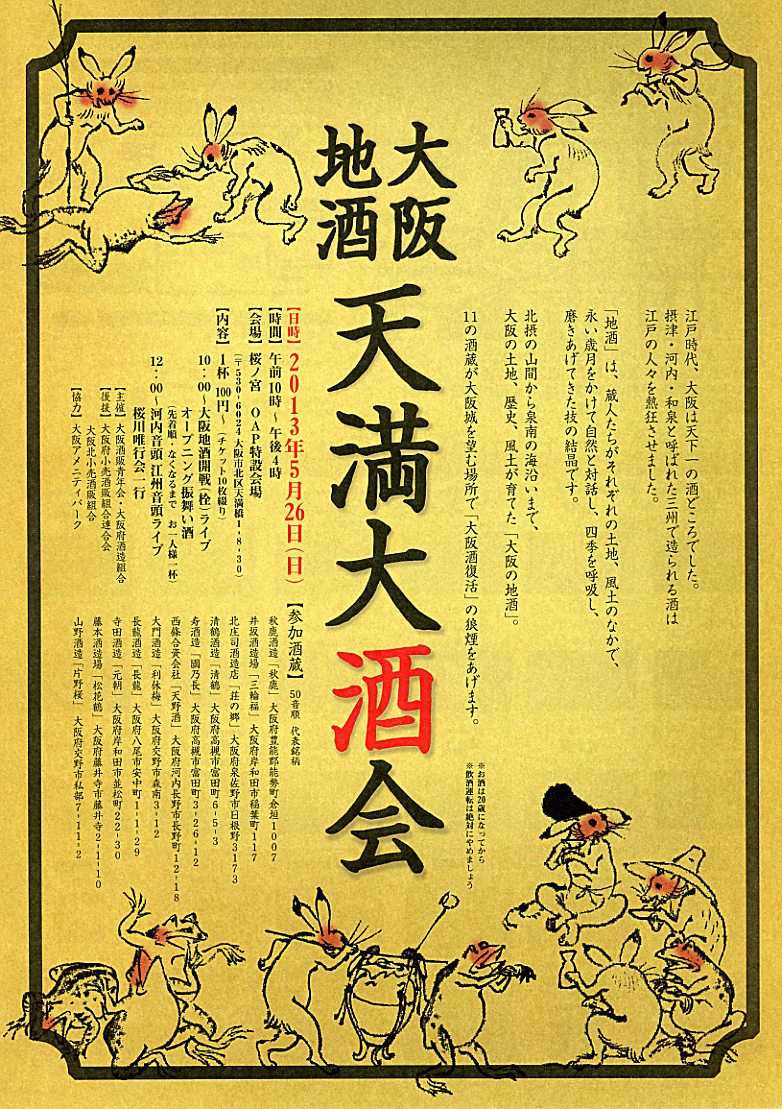 大阪
地酒
天満大酒会
江戸時代、大阪は天下一の酒どころでした。
摂津・河内・和泉と呼ばれた三州で造られる酒は
江戸の人々を熱狂させました。
「地酒」は、蔵人たちがそれぞれの土地、風土のなかで、
永い歳月をかけて自然と対話し、四季を呼吸し、
磨きあげてきた技の結晶です。
北摂の山間から泉南の海沿いまで、
大阪の土地、歴史、風土が育てた「大阪の地酒」。
11の酒蔵が大阪城を望む場所で「大阪酒復活」の狼煙をあげます。
※お酒は20歳になってから
※飲酒運転は絶対にやめましょう
【日時】2013年5月26日(日)
【時間】午前10時〜午後4時
【会場】桜ノ宮 OAP特設会場
(〒530-6024大阪市北区天満橋1-8-30)
【内容】1杯 100円〜(チケット10枚綴り)
10:00〜大阪地酒開戦(栓)ライブ
オープニング振舞い酒
(先着順・なくなるまで お一人様一杯)
12:00〜河内音頭 江州音頭ライブ
桜川唯行会一行
【主催】大阪酒販青年会・大阪府酒造組合
【後援】大阪府小売酒販組合連合会
大阪北小売酒販組合
【協力】大阪アメニティパーク
【参加酒蔵】50音順 代表銘柄
秋鹿酒造「秋鹿」大阪府豊能郡能勢町倉垣1007
井坂酒造場「三輪福」大阪府岸和田市稲葉町117
北庄司酒造店「荘の郷」大阪府泉佐野市日根野3173
清鶴酒造「清鶴」大阪府高槻市富田町6-5-3
寿酒造「國乃長」大阪府高槻市富田町3-26-12
西條合資会社「天野酒」大阪府河内長野市長野町12-18
大門酒造「利休梅」大阪府交野市森南3-12
長龍酒造「長龍」大阪府八尾市安中町1-1-29
寺田酒造「元朝」大阪府岸和田市並松町22-30
藤本酒造場「松花鶴」大阪府藤井寺市藤井寺2-1-10
山野酒造「片野桜」大阪府交野市私部7-11-2